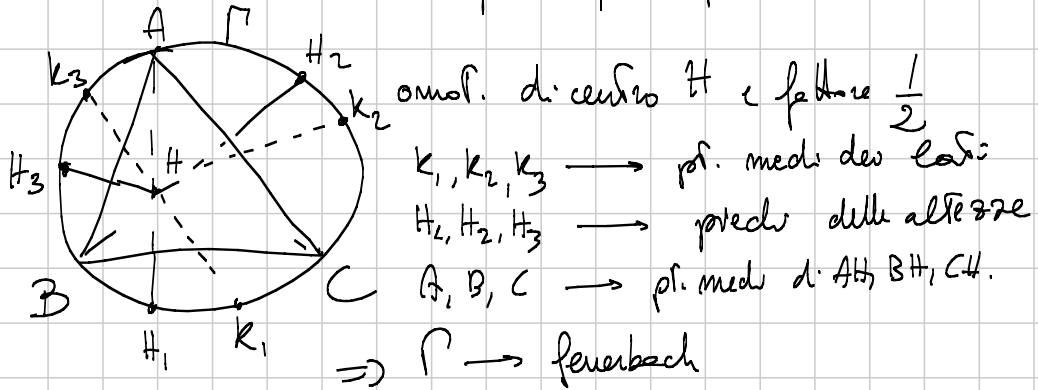 A Γ
K₃ H₂
K₂
H₃ H
B C
H₁ K₁
omot. di centro H e fattore 1/2
K₁, K₂, K₃ → pt. medi dei lati
H₁, H₂, H₃ → piedi delle altezze
A, B, C → pt. medi di AH, BH, CH.
⇒ Γ → feuerbach